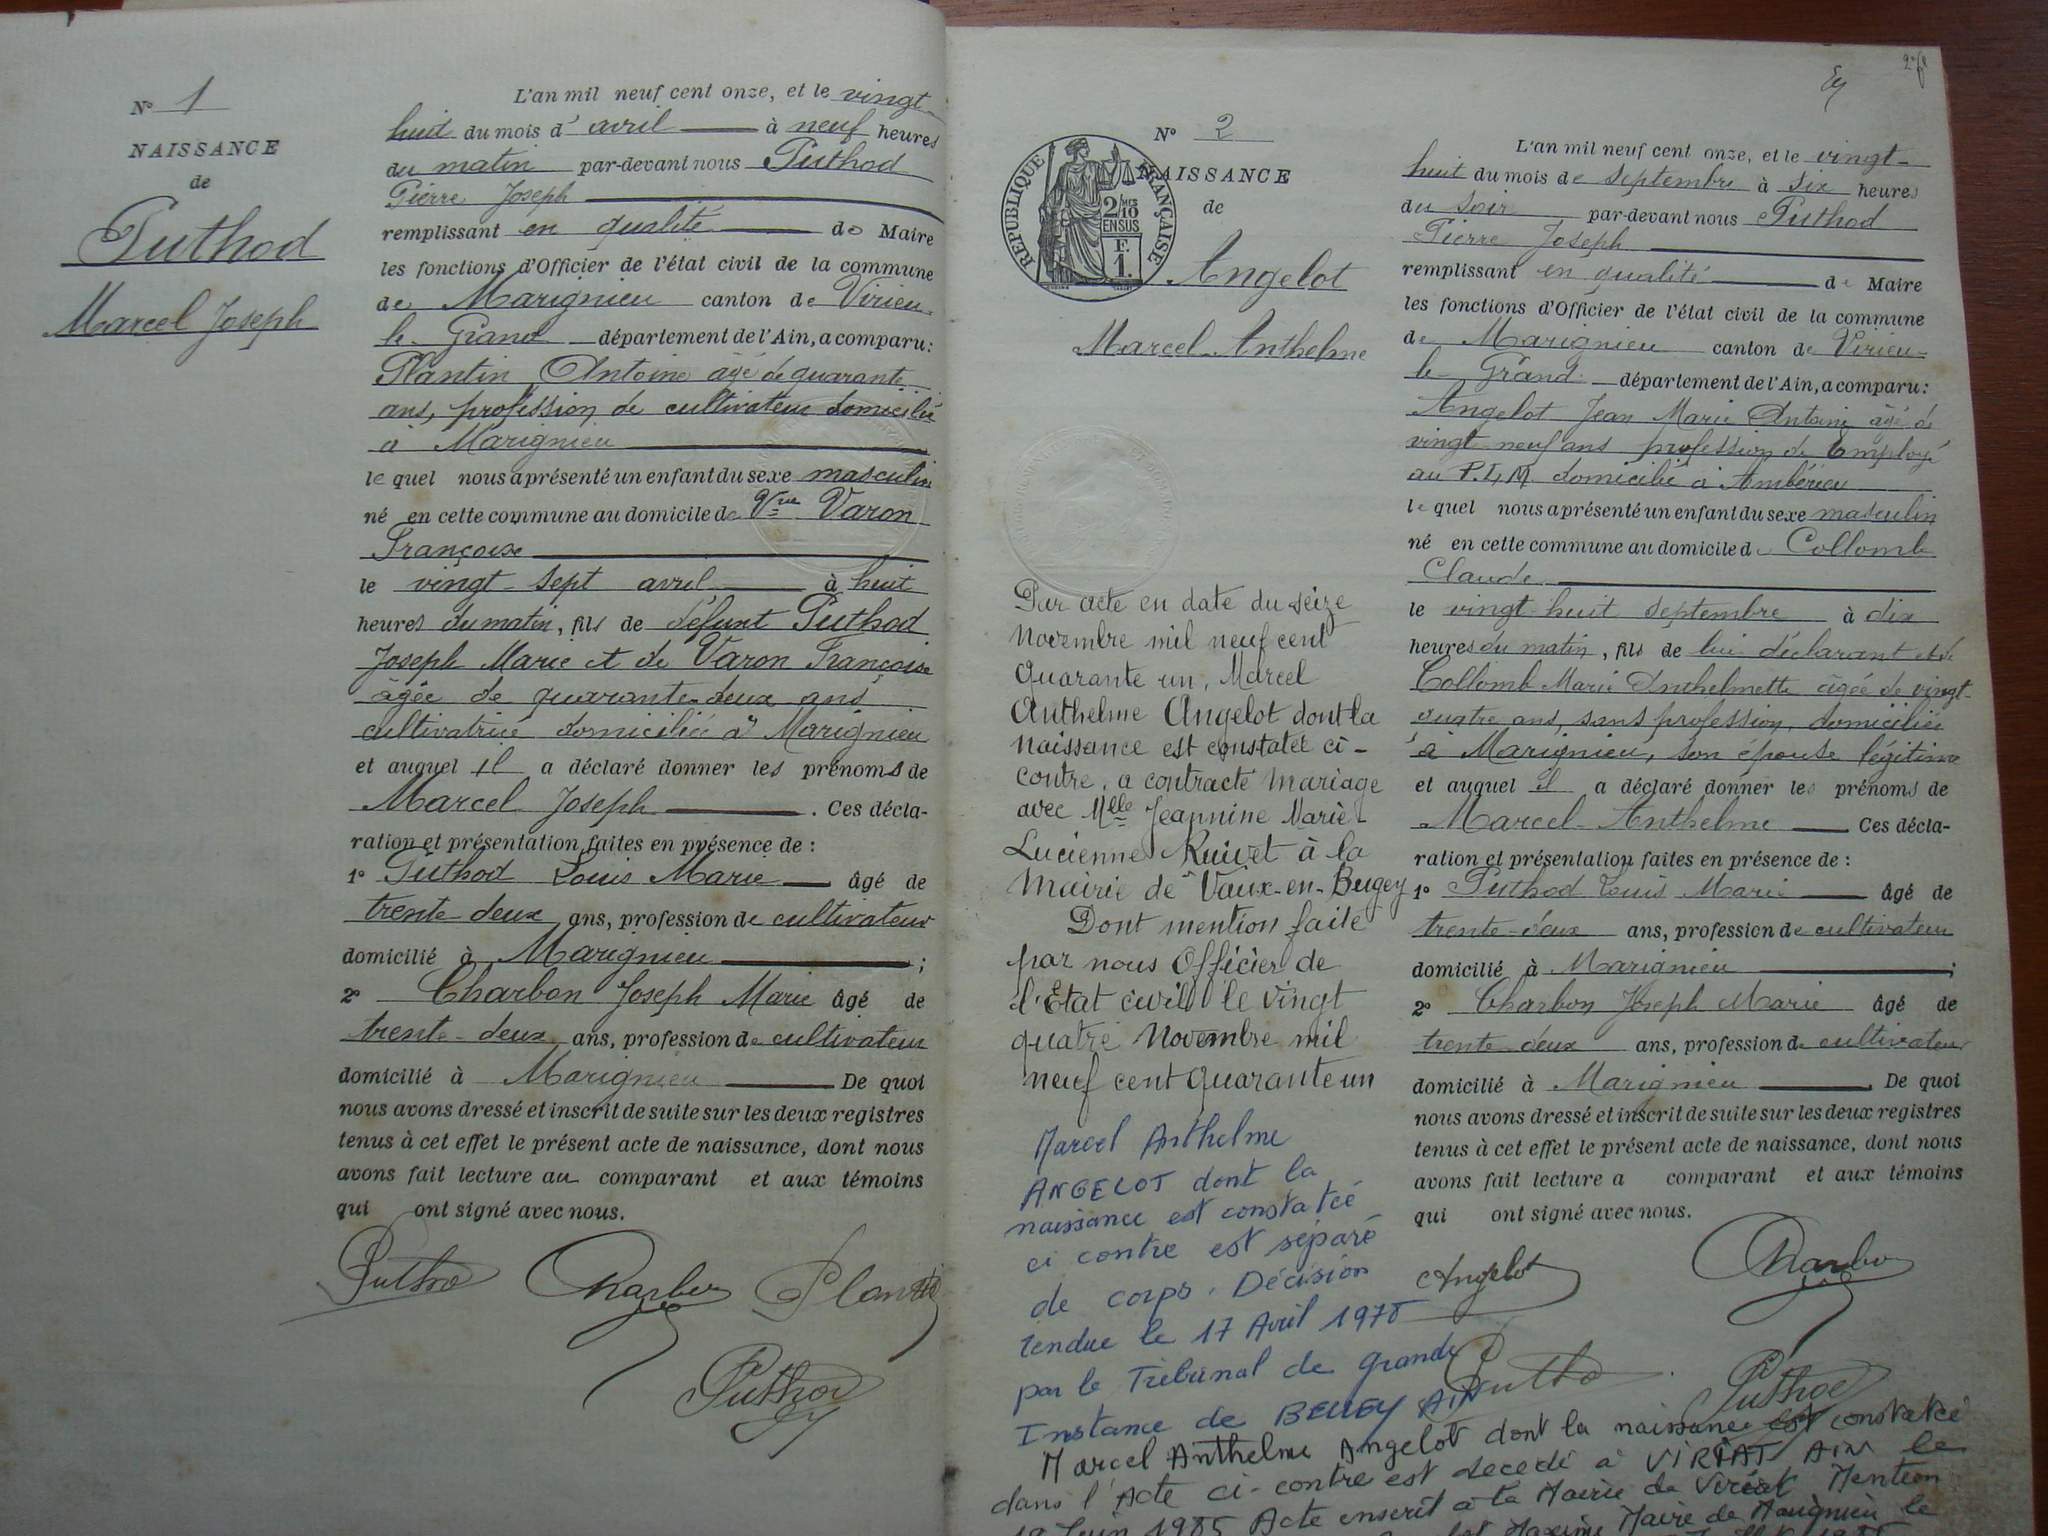 N° 1
NAISSANCE
de
Puthod
Marcel Joseph
L'an mil neuf cent onze, et le vingt-
huit du mois d' avril à neuf heures
du matin par-devant nous Puthod
Pierre Joseph
remplissant en qualité de Maire
les fonctions d'Officier de l'état civil de la commune
de Marignieu canton de Virieu-
le-Grand département de l'Ain, a comparu:
Plantin Antoine âgé de quarante
ans, profession de cultivateur domicilié
à Marignieu
le quel nous a présenté un enfant du sexe masculin
né en cette commune au domicile de Vve Varon
Françoise
le vingt-sept avril à huit
heures du matin, fils de défunt Puthod
Joseph Marie et de Varon Françoise
âgée de quarante-deux ans
cultivatrice domiciliée à Marignieu
et auquel il a déclaré donner les prénoms de
Marcel Joseph . Ces décla-
ration et présentation faites en présence de :
1° Puthod Louis Marie âgé de
trente-deux ans, profession de cultivateur
domicilié à Marignieu ;
2° Charbon Joseph Marie âgé de
trente-deux ans, profession de cultivateur
domicilié à Marignieu De quoi
nous avons dressé et inscrit de suite sur les deux registres
tenus à cet effet le présent acte de naissance, dont nous
avons fait lecture au comparant et aux témoins
qui ont signé avec nous.
Puthod Charbon Plantin
Puthod
N° 2
NAISSANCE
de
RÉPUBLIQUE FRANÇAISE
2/10 MES
EN SUS
F.
1.
Angelot
Marcel Anthelme
Par acte en date du seize
Novembre mil neuf cent
quarante un, Marcel
Anthelme Angelot dont la
naissance est constatée ci-
contre, a contracté mariage
avec Melle Jeannine Marie-
Lucienne Ruivet à la
Mairie de Vaux-en-Bugey
Dont mention faite
par nous Officier de
l'Etat civil le vingt
quatre Novembre mil
neuf cent quarante un
Marcel Anthelme
ANGELOT dont la
naissance est constatée
ci contre est séparé
de corps. Décision
rendue le 17 Avril 1978
par le Tribunal de Grande
Instance de BELLEY AIN
L'an mil neuf cent onze, et le vingt-
huit du mois de septembre à six heures
du soir par-devant nous Puthod
Pierre Joseph
remplissant en qualité de Maire
les fonctions d'Officier de l'état civil de la commune
de Marignieu canton de Virieu-
le-Grand département de l'Ain, a comparu:
Angelot Jean Marie Antoine âgé de
vingt-neuf ans profession de Employé
au P.L.M. domicilié à Ambérieu
le quel nous a présenté un enfant du sexe masculin
né en cette commune au domicile de Collomb
Claude
le vingt-huit septembre à dix
heures du matin, fils de lui déclarant et de
Collomb Marie Anthelmette âgée de vingt-
quatre ans, sans profession, domiciliée
à Marignieu, son épouse légitime
et auquel il a déclaré donner les prénoms de
Marcel-Anthelme Ces décla-
ration et présentation faites en présence de :
1° Puthod Louis Marie âgé de
trente-deux ans, profession de cultivateur
domicilié à Marignieu ;
2° Charbon Joseph Marie âgé de
trente-deux ans, profession de cultivateur
domicilié à Marignieu . De quoi
nous avons dressé et inscrit de suite sur les deux registres
tenus à cet effet le présent acte de naissance, dont nous
avons fait lecture a comparant et aux témoins
qui ont signé avec nous.
Angelot Charbon
Puthod Puthod
Marcel Anthelme Angelot dont la naissance est constatée
dans l'Acte ci-contre est décédé à VIRIAT AIN le
Juin 1985 Acte inscrit à la Mairie de Viriat Mention
Maxime Maire de Marignieu le